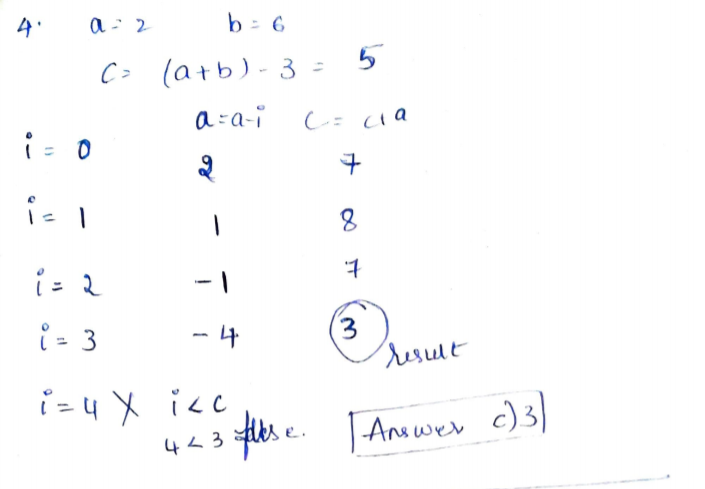 4. a = 2 b = 6
C = (a+b) - 3 = 5
a = a-i C = c+a
i = 0 2 7
i = 1 1 8
i = 2 -1 7
i = 3 -4 3 result
i = 4 X i < c
4 < 3 false.
Answer c) 3